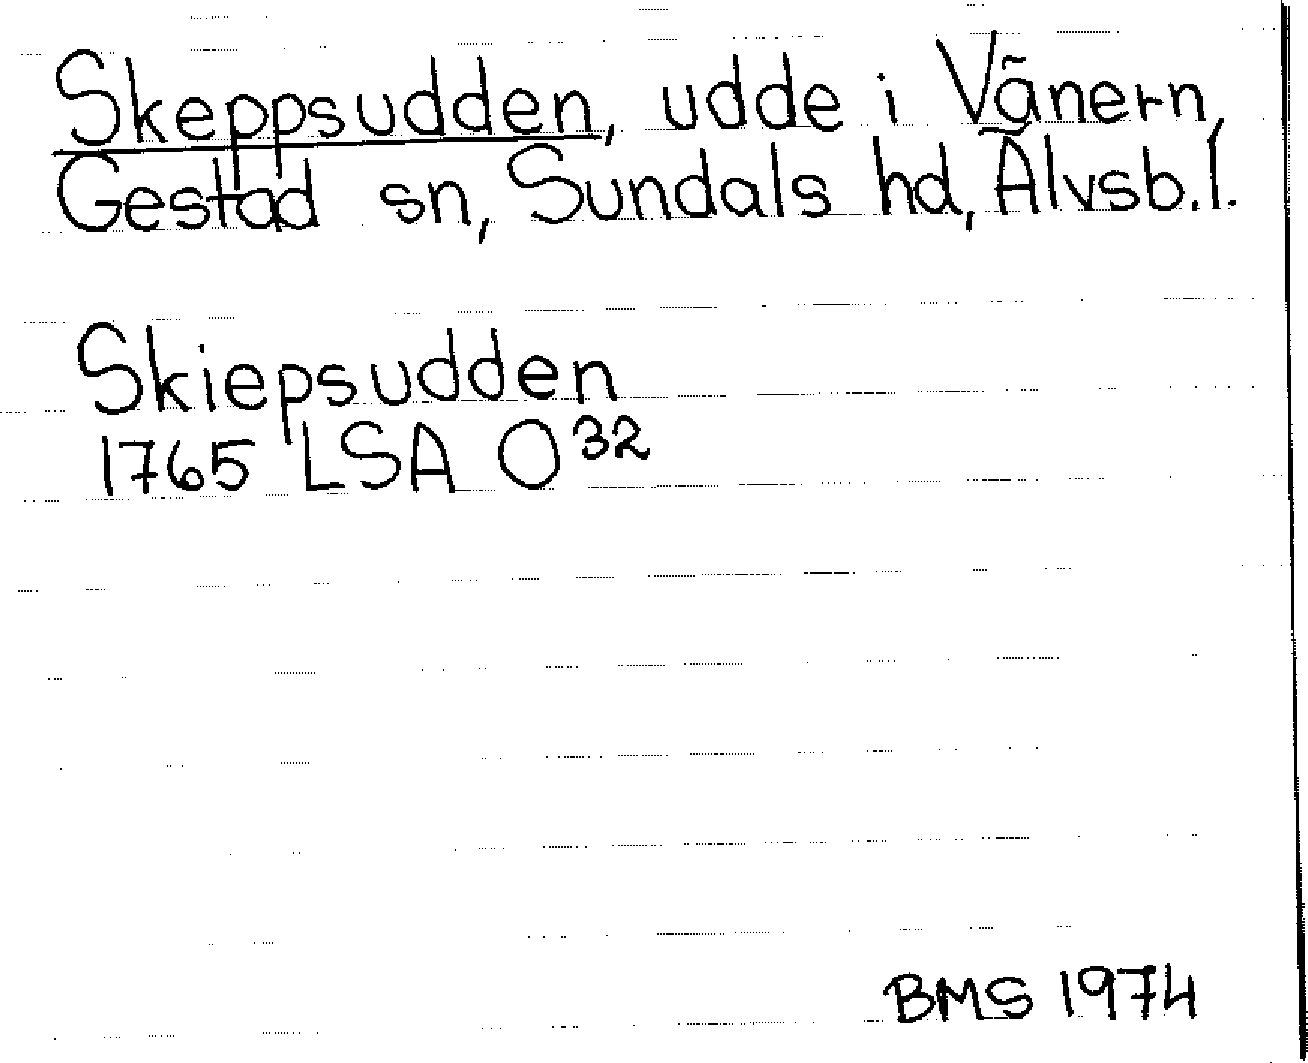 Skeppsudden, udde i Vänern,
Gestad sn, Sundals hd, Älvsb.l.
Skiepsudden
1765 LSA O32
BMS 1974